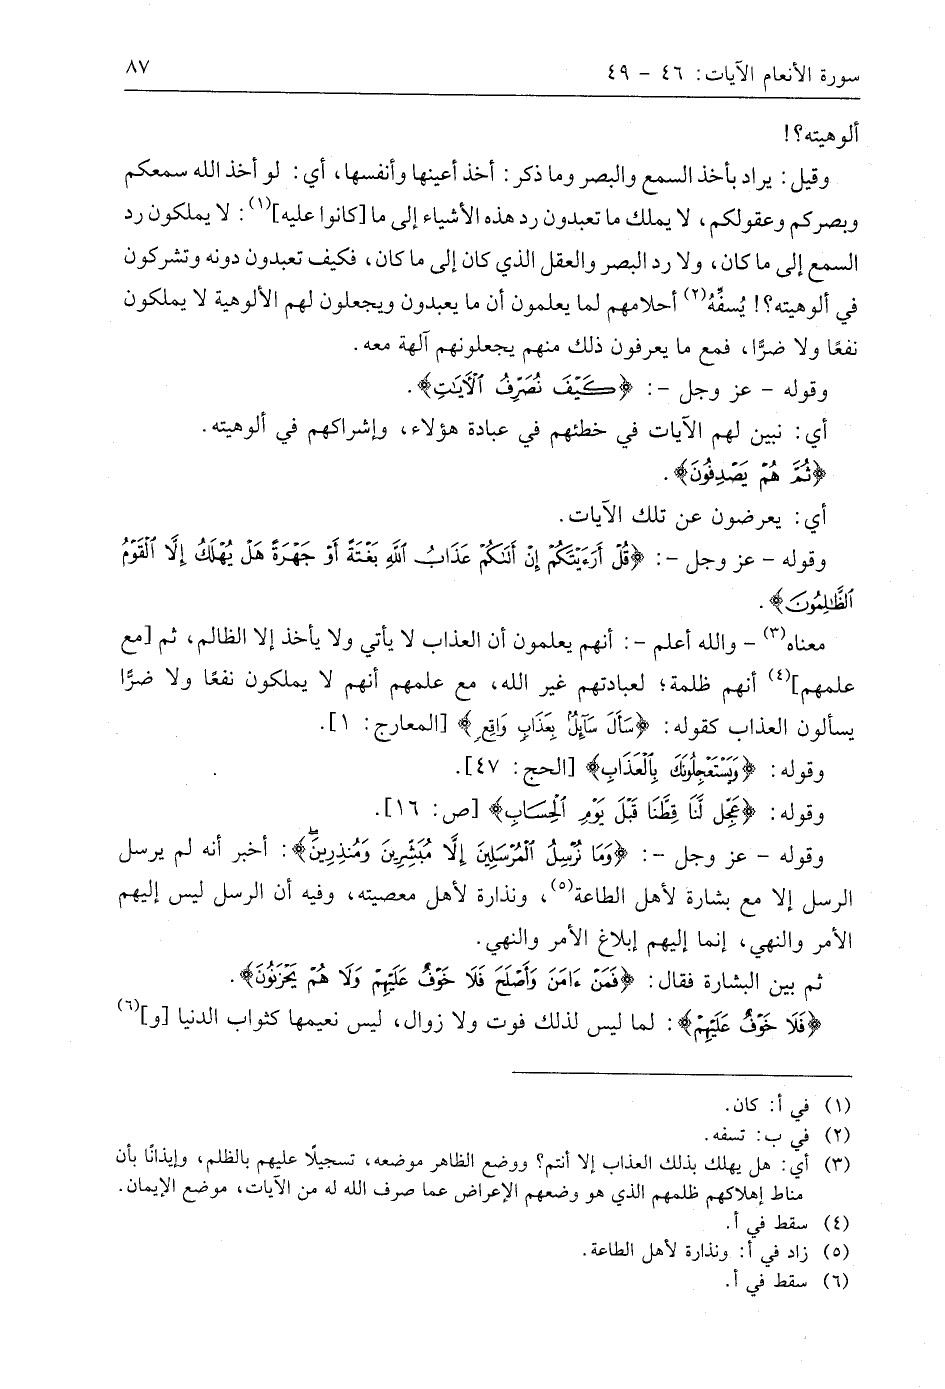 سورة الأنعام الآيات: ٤٦ - ٤٩
٨٧
ألوهيته؟!
وقيل: يراد بأخذ السمع والبصر وما ذكر: أخذ أعينها وأنفسها، أي: لو أخذ الله سمعكم
وبصركم وعقولكم، لا يملك ما تعبدون رد هذه الأشياء إلى ما [كانوا عليه](١): لا يملكون رد
السمع إلى ما كان، ولا رد البصر والعقل الذي كان إلى ما كان، فكيف تعبدون دونه وتشركون
في ألوهيته؟! يُسفِّهُ(٢) أحلامهم لما يعلمون أن ما يعبدون ويجعلون لهم الألوهية لا يملكون
نفعًا ولا ضرًّا، فمع ما يعرفون ذلك منهم يجعلونهم آلهة معه.
وقوله - عز وجل -: ﴿كَيْفَ نُصَرِّفُ ٱلْآيَٰتِ﴾.
أي: نبين لهم الآيات في خطئهم في عبادة هؤلاء، وإشراكهم في ألوهيته.
﴿ثُمَّ هُمْ يَصْدِفُونَ﴾.
أي: يعرضون عن تلك الآيات.
وقوله - عز وجل -: ﴿قُلْ أَرَءَيْتَكُمْ إِنْ أَتَىٰكُمْ عَذَابُ ٱللَّهِ بَغْتَةً أَوْ جَهْرَةً هَلْ يُهْلَكُ إِلَّا ٱلْقَوْمُ
ٱلظَّٰلِمُونَ﴾.
معناه(٣) - والله أعلم -: أنهم يعلمون أن العذاب لا يأتي ولا يأخذ إلا الظالم، ثم [مع
علمهم](٤) أنهم ظلمة؛ لعبادتهم غير الله، مع علمهم أنهم لا يملكون نفعًا ولا ضرًّا
يسألون العذاب كقوله: ﴿سَأَلَ سَآئِلٌۢ بِعَذَابٍ وَاقِعٍ﴾ [المعارج: ١].
وقوله: ﴿وَيَسْتَعْجِلُونَكَ بِٱلْعَذَابِ﴾ [الحج: ٤٧].
وقوله: ﴿عَجِّل لَّنَا قِطَّنَا قَبْلَ يَوْمِ ٱلْحِسَابِ﴾ [ص: ١٦].
وقوله - عز وجل -: ﴿وَمَا نُرْسِلُ ٱلْمُرْسَلِينَ إِلَّا مُبَشِّرِينَ وَمُنذِرِينَۖ﴾: أخبر أنه لم يرسل
الرسل إلا مع بشارة لأهل الطاعة(٥)، ونذارة لأهل معصيته، وفيه أن الرسل ليس إليهم
الأمر والنهي، إنما إليهم إبلاغ الأمر والنهي.
ثم بين البشارة فقال: ﴿فَمَنْ ءَامَنَ وَأَصْلَحَ فَلَا خَوْفٌ عَلَيْهِمْ وَلَا هُمْ يَحْزَنُونَ﴾.
﴿فَلَا خَوْفٌ عَلَيْهِمْ﴾: لما ليس لذلك فوت ولا زوال، ليس نعيمها كثواب الدنيا [و](٦)
(١) في أ: كان.
(٢) في ب: تسفه.
(٣) أي: هل يهلك بذلك العذاب إلا أنتم؟ ووضع الظاهر موضعه، تسجيلًا عليهم بالظلم، وإيذانًا بأن
مناط إهلاكهم ظلمهم الذي هو وضعهم الإعراض عما صرف الله له من الآيات، موضع الإيمان.
(٤) سقط في أ.
(٥) زاد في أ: ونذارة لأهل الطاعة.
(٦) سقط في أ.